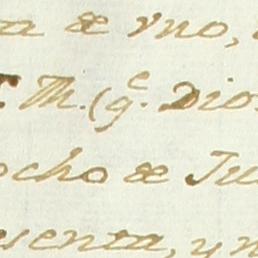 a de yno,
Th. (q.e Dios
ocho de Ju
esenta, y n